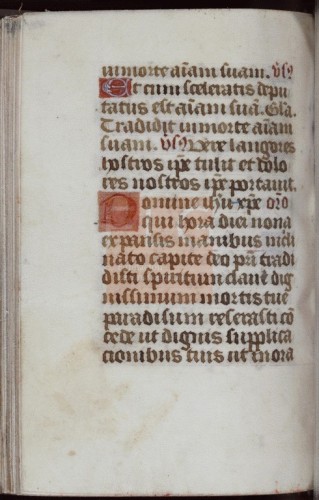 in morte aīam suam. v̄s̄
Et cum sceleratis depu
tatus est aīam suā. Gl̄a.
Tradidit in morte aīam
suam. v̄s̄ Vere langores
nostros ip̄e tulit et dolo
res nostros ip̄e portauit.
Domine ihū xp̄e or̄o
qui hora diei nona
expansis manibus incli
nato capite deo pr̄i tradi
disti spiritum claue dig
nissimum mortis tue
paradisum reserasti cō
cede ut dignis supplica
cionibus tuis ut in ora